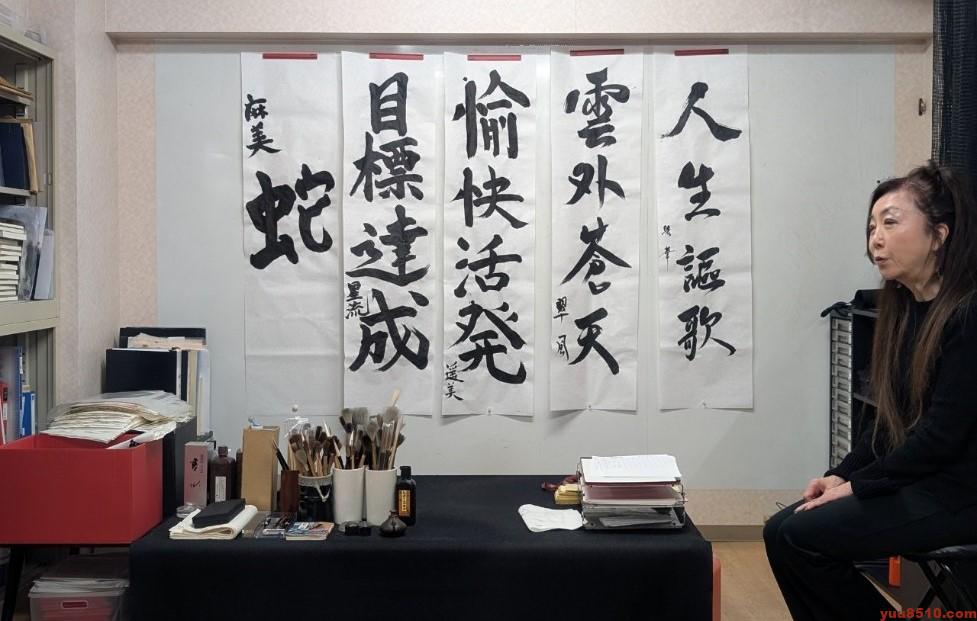 人生謳歌
雲外蒼天
翠風
愉快活発
遥美
目標達成
星流
蛇
麻美
yua8510.com